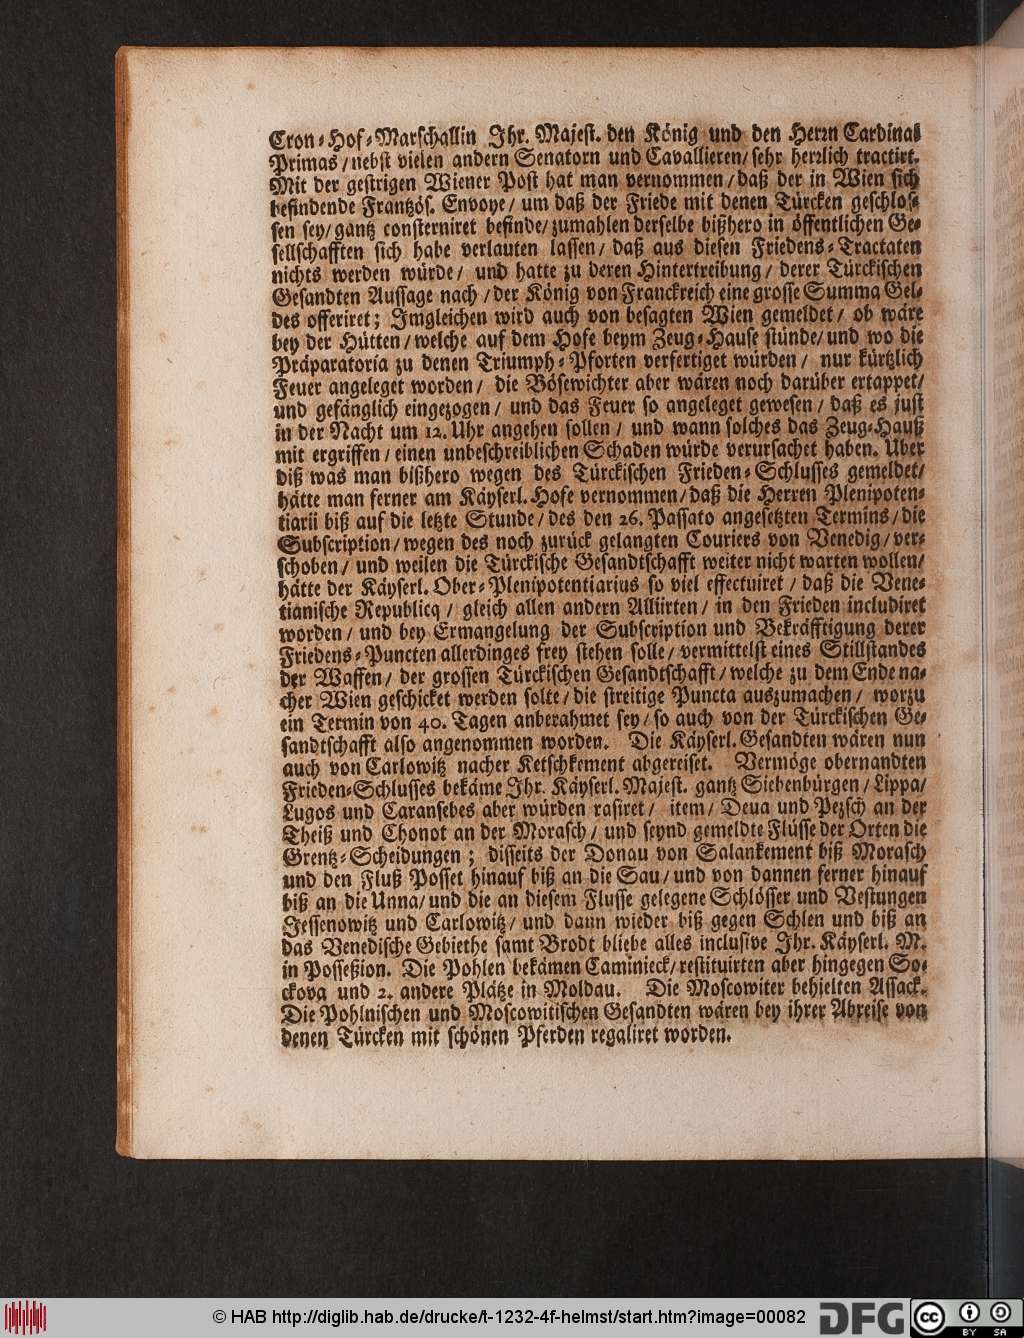 Cron-Hof-Marschallin Ihr. Majest. den König und den Herrn Cardinal
Primas / nebst vielen andern Senatorn und Cavallieren / sehr herzlich tractirt.
Mit der gestrigen Wiener Post hat man vernommen / daß der in Wien sich
befindende Frantzös. Envoye / um daß der Friede mit denen Türcken geschlos-
sen sey / gantz consterniret befinde / zumahlen derselbe bißhero in öffentlichen Ge-
sellschafften sich habe verlauten lassen / daß aus diesen Friedens-Tractaten
nichts werden würde / und hatte zu deren Hintertreibung / derer Türckischen
Gesandten Aussage nach / der König von Franckreich eine grosse Summa Gel-
des offeriret; Imgleichen wird auch von besagten Wien gemeldet / ob wäre
bey der Hütten / welche auf dem Hofe beym Zeug-Hause stünde / und wo die
Präparatoria zu denen Triumph-Pforten verfertiget würden / nur kürtzlich
Feuer angeleget worden / die Bösewichter aber wären noch darüber ertappet /
und gefänglich eingezogen / und das Feuer so angeleget gewesen / daß es just
in der Nacht um 12. Uhr angehen sollen / und wann solches das Zeug-Hauß
mit ergriffen / einen unbeschreiblichen Schaden würde verursachet haben. Uber
diß was man bißhero wegen des Türckischen Frieden-Schlusses gemeldet /
hätte man ferner am Käyserl. Hofe vernommen / daß die Herren Plenipoten-
tiarii biß auf die letzte Stunde / des den 26. Passato angesetzten Termins / die
Subscription / wegen des noch zurück gelangten Couriers von Venedig / ver-
schoben / und weilen die Türckische Gesandtschafft weiter nicht warten wollen /
hätte der Käyserl. Ober-Plenipotentiarius so viel effectuiret / daß die Vene-
tianische Republicq / gleich allen andern Alliirten / in den Frieden includiret
worden / und bey Ermangelung der Subscription und Bekräfftigung derer
Friedens-Puncten allerdinges frey stehen solle / vermittelst eines Stillstandes
der Waffen / der grossen Türckischen Gesandtschafft / welche zu dem Ende na-
cher Wien geschicket werden solte / die streitige Puncta auszumachen / worzu
ein Termin von 40. Tagen anberahmet sey / so auch von der Türckischen Ge-
sandtschafft also angenommen worden. Die Käyserl. Gesandten wären nun
auch von Carlowitz nacher Ketschkement abgereiset. Vermöge obernandten
Frieden-Schlusses bekäme Ihr. Käyserl. Majest. gantz Siebenbürgen / Lippa /
Lugos und Caransebes aber würden rasiret / item / Deva und Pezsch an der
Theiß und Chonot an der Morasch / und seynd gemeldte Flüsse der Orten die
Grentz-Scheidungen; disseits der Donau von Salankement biß Morasch
und den Fluß Posset hinauf biß an die Sau / und von dannen ferner hinauf
biß an die Unna / und die an diesem Flusse gelegene Schlösser und Vestungen
Jessenowitz und Carlowitz / und dann wieder biß gegen Schlen und biß an
das Venedische Gebiethe samt Brodt bliebe alles inclusive Ihr. Käyserl. M.
in Posseßion. Die Pohlen bekämen Caminieck / restituirten aber hingegen So-
ckova und 2. andere Plätze in Moldau. Die Moscowiter behielten Assack.
Die Pohlnischen und Moscowitischen Gesandten wären bey ihrer Abreise von
denen Türcken mit schönen Pferden regaliret worden.
© HAB http://diglib.hab.de/drucke/t-1232-4f-helmst/start.htm?image=00082
DFG
cc BY SA